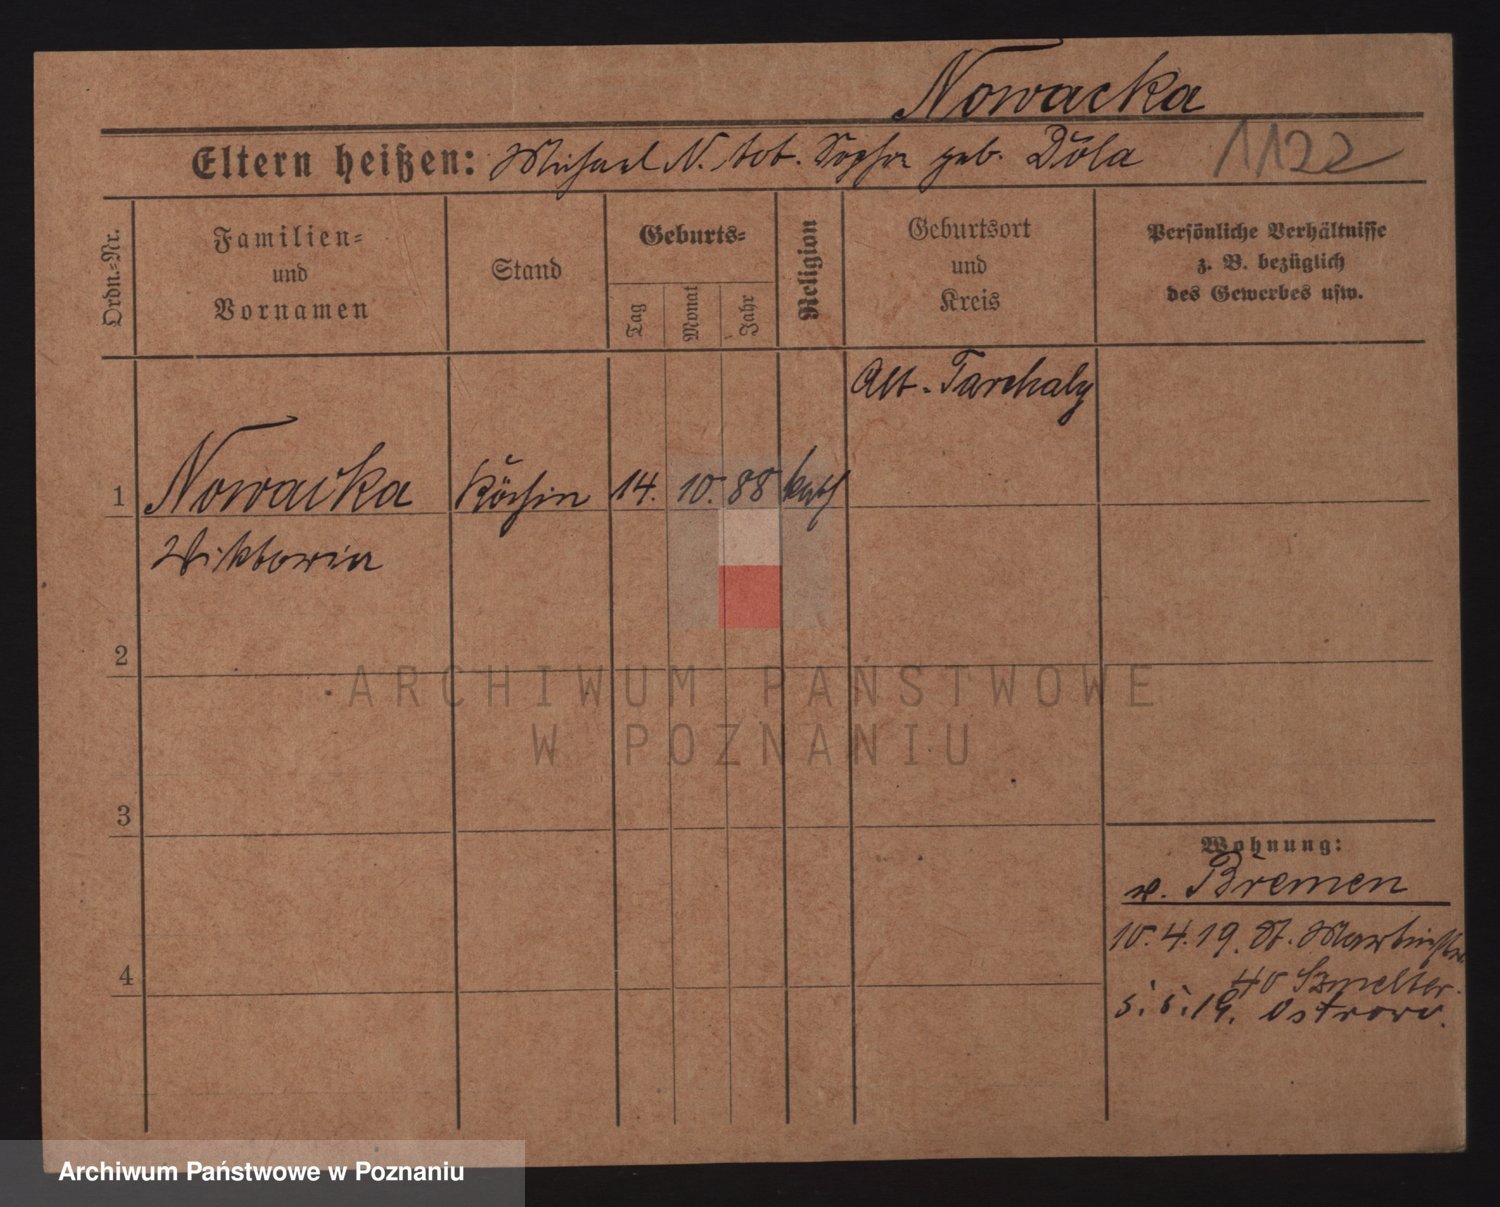 Nowacka
Eltern heißen: Michael N. tot. Sophia geb. Dola
1122
Ordn.-Nr.
Familien-
und
Vornamen
Stand
Geburts-
Tag
Monat
Jahr
Religion
Geburtsort
und
Kreis
Persönliche Verhältnisse
z. B. bezüglich
des Gewerbes usw.
Alt-Tarchaly
1 Nowacka Köchin 14. 10. 88 kath
Wiktoria
2
ARCHIWUM PAŃSTWOWE
W POZNANIU
3
Wohnung:
v. Bremen
10.4.19. St. Martinstr.
40 Szmelter.
5.5.19. Ostrowo.
4
Archiwum Państwowe w Poznaniu